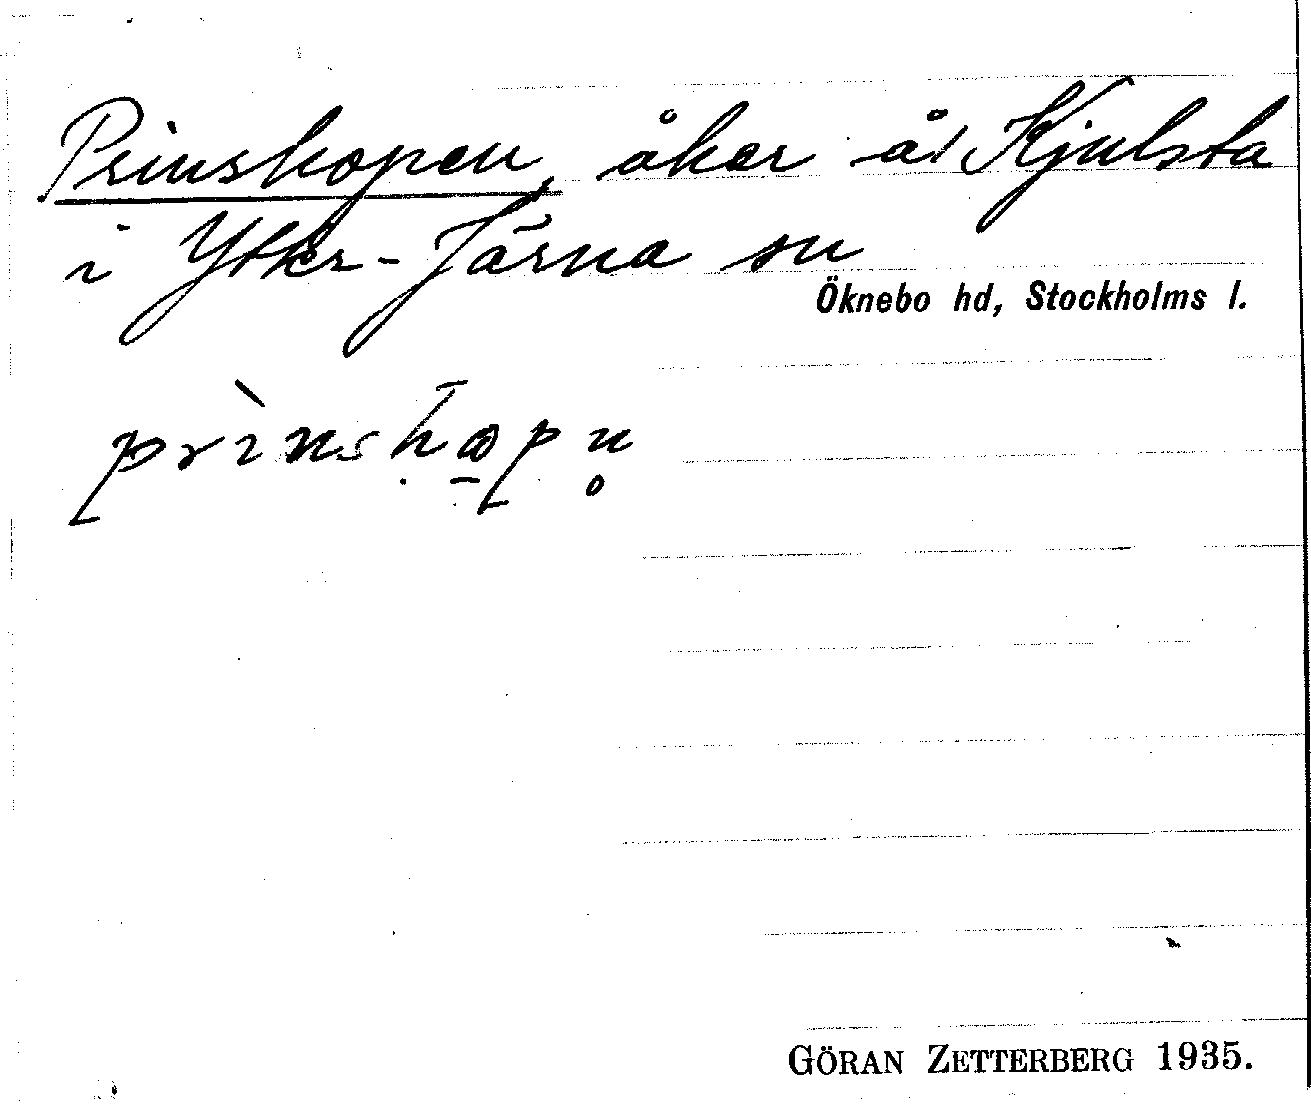 Prinshopen, åker å Kjulsta
i Ytter-Järna sn
Öknebo hd, Stockholms l.
prìnshω̱pn̥
GÖRAN ZETTERBERG 1935.